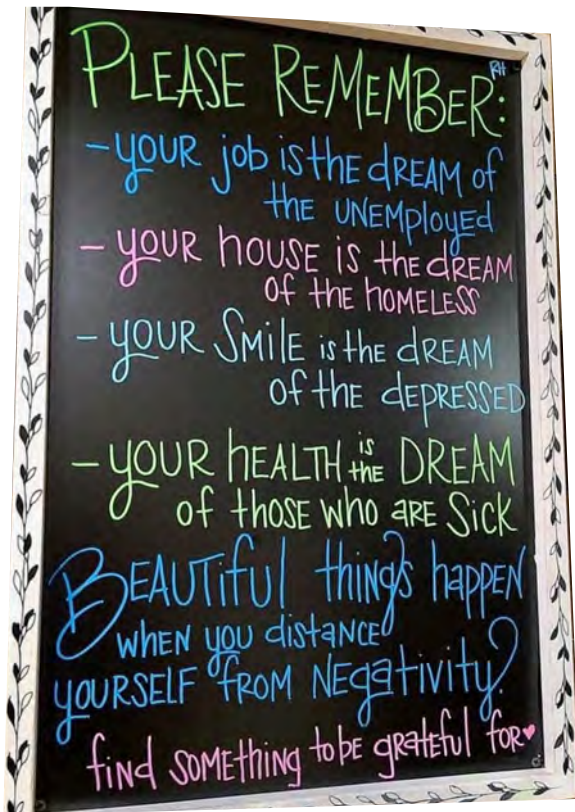 PLEASE REMEMBER:
RH
- YOUR job is the DREAM of
the UNEMployed
- YOUR house is the dREAM
of the homeless
- YOUR Smile is the dREAM
of the depressed
- YOUR hEALTH is the DREAM
of those who are Sick
BEAUTiful things happen
when you distance
yourself from Negativity?
find something to be grateful for♥